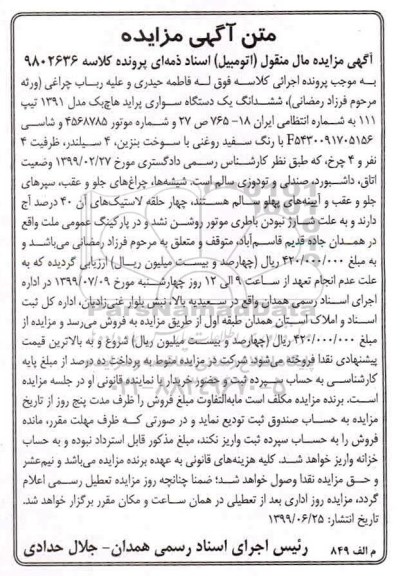 متن آگهی مزایده
آگهی مزایده مال منقول (اتومبیل) اسناد ذمه‌ای پرونده کلاسه ۹۸۰۲۶۳۶
به موجب پرونده اجرائی کلاسه فوق له فاطمه حیدری و علیه رباب چراغی (ورثه
مرحوم فرزاد رمضانی)، ششدانگ یک دستگاه سواری پراید هاچ‌بک مدل ۱۳۹۱ تیپ
۱۱۱ به شماره انتظامی ایران ۱۸- ۷۶۵ ص ۲۷ و شماره موتور ۴۵۶۸۷۸۵ و شاسی
F۵۴۳۰۰۹۱۷۰۵۱۵۶ با رنگ سفید روغنی با سوخت بنزین، ۴ سیلندر، ظرفیت ۴
نفر و ۴ چرخ، که طبق نظر کارشناس رسمی دادگستری مورخ ۱۳۹۹/۰۲/۲۷ وضعیت
اتاق، داشبورد، صندلی و تودوزی سالم است. شیشه‌ها، چراغ‌های جلو و عقب، سپرهای
جلو و عقب و آیینه‌های پهلو سالم هستند، چهار حلقه لاستیک‌های آن ۴۰ درصد آج
دارند و به علت شارژ نبودن باطری موتور روشن نشد و در پارکینگ عمومی ملت واقع
در همدان جاده قدیم قاسم‌آباد، متوقف و متعلق به مرحوم فرزاد رمضانی می‌باشد و
به مبلغ ۴۲۰/۰۰۰/۰۰۰ ریال (چهارصد و بیست میلیون ریال) ارزیابی گردیده که به
علت عدم انجام تعهد از ساعت ۹ الی ۱۲ روز چهارشنبه مورخ ۱۳۹۹/۰۷/۰۹ در اداره
اجرای اسناد رسمی همدان واقع در سعیدیه بالا، نبش بلوار غنی‌زادیان، اداره کل ثبت
اسناد و املاک استان همدان طبقه اول از طریق مزایده به فروش می‌رسد و مزایده از
مبلغ ۴۲۰/۰۰۰/۰۰۰ ریال (چهارصد و بیست میلیون ریال) شروع و به بالاترین قیمت
پیشنهادی نقدا فروخته می‌شود. شرکت در مزایده منوط به پرداخت ده درصد از مبلغ پایه
کارشناسی به حساب سپرده ثبت و حضور خریدار یا نماینده قانونی او در جلسه مزایده
است، برنده مزایده مکلف است مابه‌التفاوت مبلغ فروش را ظرف مدت پنج روز از تاریخ
مزایده به حساب صندوق ثبت تودیع نماید و در صورتی که ظرف مهلت مقرر، مانده
فروش را به حساب سپرده ثبت واریز نکند، مبلغ مذکور قابل استرداد نبوده و به حساب
خزانه واریز خواهد شد. کلیه هزینه‌های قانونی به عهده برنده مزایده می‌باشد و نیم‌عشر
و حق مزایده نقدا وصول خواهد شد؛ ضمنا چنانچه روز مزایده تعطیل رسمی اعلام
گردد، مزایده روز اداری بعد از تعطیلی در همان ساعت و مکان مقرر برگزار خواهد شد.
تاریخ انتشار: ۱۳۹۹/۰۶/۲۵
م الف ۸۴۹ رئیس اجرای اسناد رسمی همدان- جلال حدادی